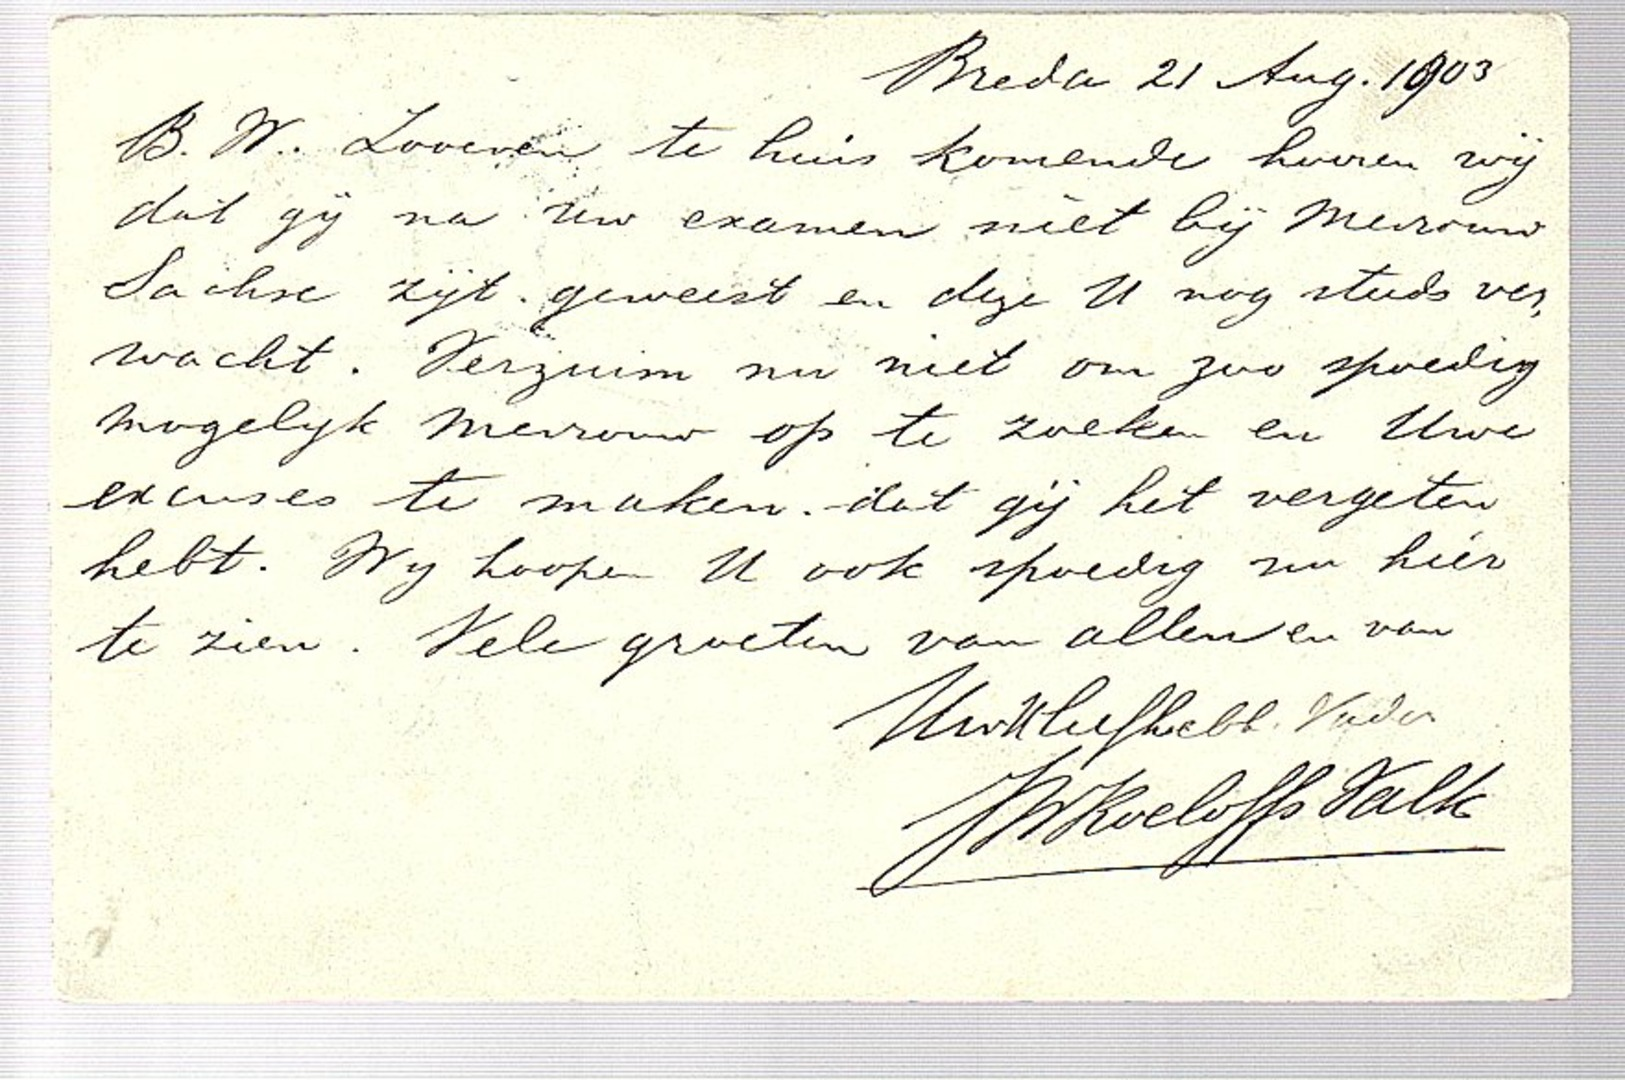 Breda 21 Aug. 1903
B. W. Zooeven te huis komende hooren wij
dat gij na uw examen niet bij Mevrouw
Sachse zijt geweest en deze U nog steeds ver,
wacht. Verzuim nu niet om zoo spoedig
mogelijk Mevrouw op te zoeken en Uwe
excuses te maken dat gij het vergeten
hebt. Wij hoopen U ook spoedig nu hier
te zien. Vele groeten van allen en van
liefhebb. Vader
Roeloffs Valk